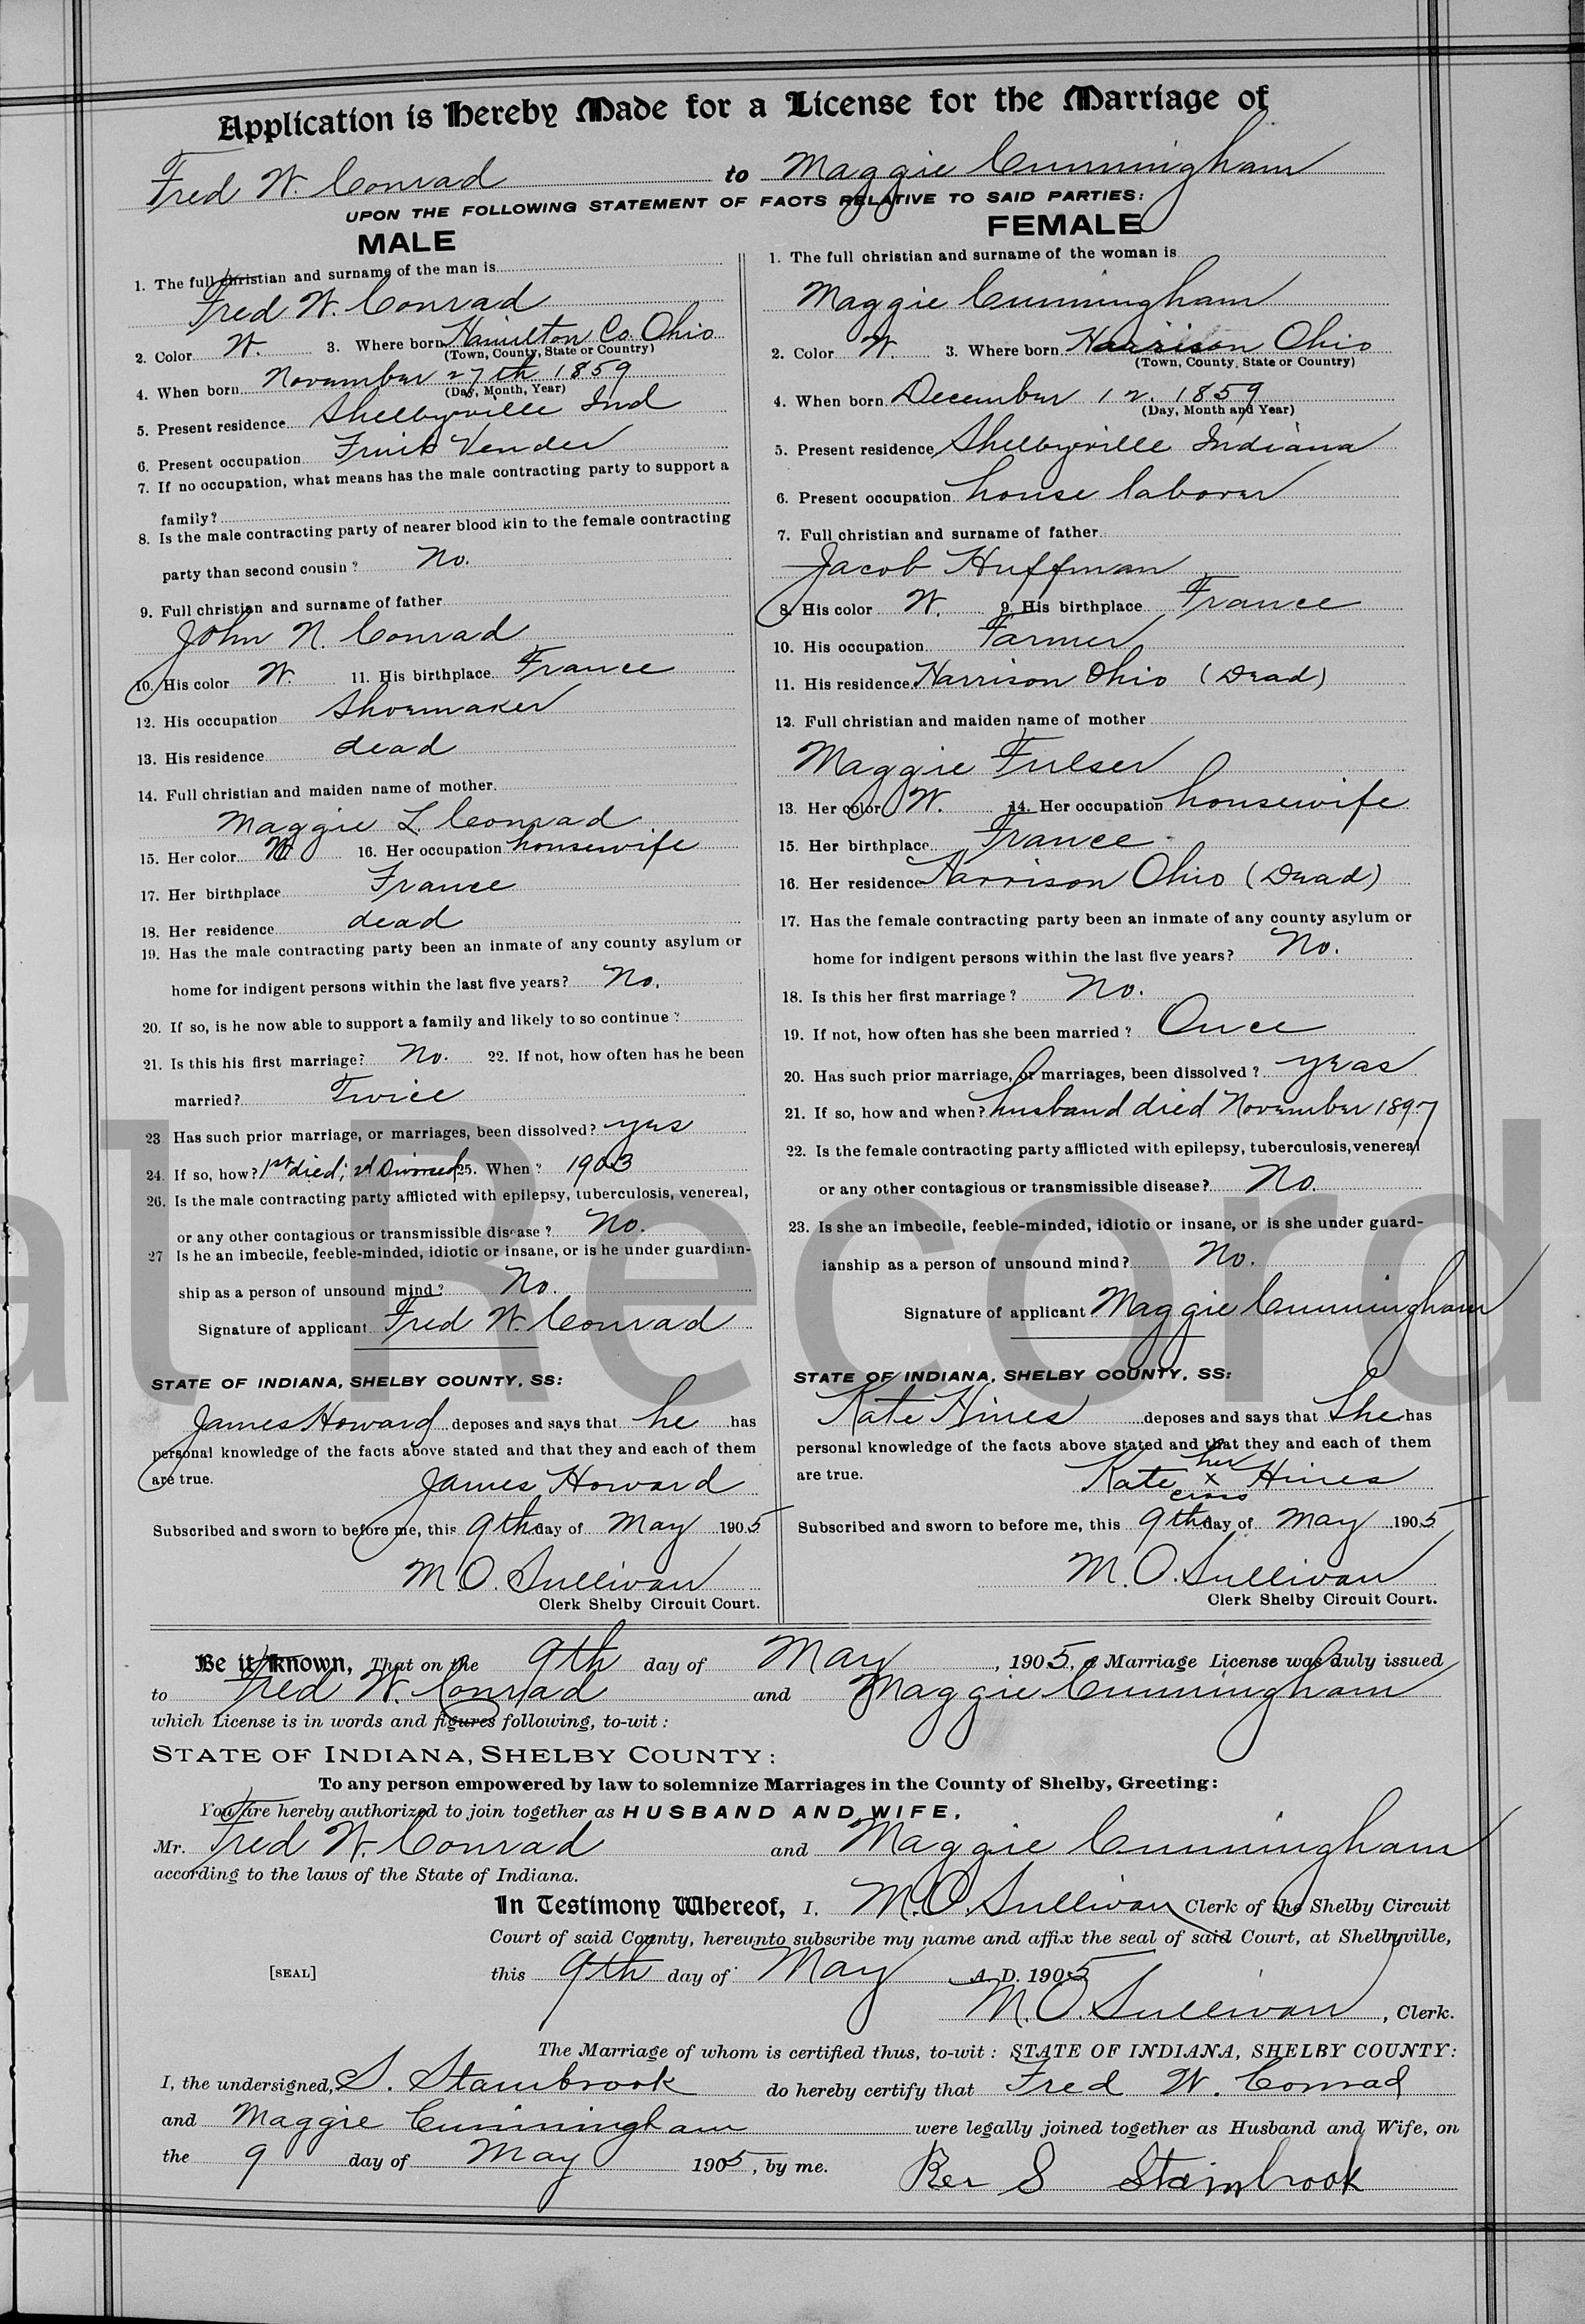 Application is Hereby Made for a License for the Marriage of
Fred W. Conrad to Maggie Cunningham
UPON THE FOLLOWING STATEMENT OF FACTS RELATIVE TO SAID PARTIES:
MALE
1. The full christian and surname of the man is
Fred W. Conrad
2. Color W. 3. Where born Hamilton Co. Ohio
(Town, County, State or Country)
4. When born November 27th 1859
(Day, Month, Year)
5. Present residence Shelbyville Ind
6. Present occupation Fruit Vender
7. If no occupation, what means has the male contracting party to support a
family?
8. Is the male contracting party of nearer blood kin to the female contracting
party than second cousin? No.
9. Full christian and surname of father
John N. Conrad
10. His color W. 11. His birthplace France
12. His occupation Shoemaker
13. His residence dead
14. Full christian and maiden name of mother
Maggie L. Conrad
15. Her color W 16. Her occupation housewife
17. Her birthplace France
18. Her residence dead
19. Has the male contracting party been an inmate of any county asylum or
home for indigent persons within the last five years? No.
20. If so, is he now able to support a family and likely to so continue?
21. Is this his first marriage? No. 22. If not, how often has he been
married? Twice
23 Has such prior marriage, or marriages, been dissolved? yes
24. If so, how? 1st died; 2d Divorced 25. When? 1903
26. Is the male contracting party afflicted with epilepsy, tuberculosis, venereal,
or any other contagious or transmissible disease? No.
27 Is he an imbecile, feeble-minded, idiotic or insane, or is he under guardian-
ship as a person of unsound mind? No.
Signature of applicant Fred W. Conrad
STATE OF INDIANA, SHELBY COUNTY, SS:
James Howard deposes and says that he has
personal knowledge of the facts above stated and that they and each of them
are true.
James Howard
Subscribed and sworn to before me, this 9th day of May 1905
M. O. Sullivan
Clerk Shelby Circuit Court.
FEMALE
1. The full christian and surname of the woman is
Maggie Cunningham
2. Color W. 3. Where born Harrison Ohio
(Town, County, State or Country)
4. When born December 12. 1859
(Day, Month and Year)
5. Present residence Shelbyville Indiana
6. Present occupation house laborer
7. Full christian and surname of father
Jacob Huffman
8. His color W. 9. His birthplace France
10. His occupation Farmer
11. His residence Harrison Ohio (Dead)
12. Full christian and maiden name of mother
Maggie Fulser
13. Her color W. 14. Her occupation housewife
15. Her birthplace France
16. Her residence Harrison Ohio (Dead)
17. Has the female contracting party been an inmate of any county asylum or
home for indigent persons within the last five years? No.
18. Is this her first marriage? No.
19. If not, how often has she been married? Once
20. Has such prior marriage, or marriages, been dissolved? yeas
21. If so, how and when? husband died November 1897
22. Is the female contracting party afflicted with epilepsy, tuberculosis, venereal
or any other contagious or transmissible disease? No.
23. Is she an imbecile, feeble-minded, idiotic or insane, or is she under guard-
ianship as a person of unsound mind? No.
Signature of applicant Maggie Cunningham
STATE OF INDIANA, SHELBY COUNTY, SS:
Kate Hines deposes and says that She has
personal knowledge of the facts above stated and that they and each of them
are true.
her
Kate x Hines
cross
Subscribed and sworn to before me, this 9th day of May 1905
M. O. Sullivan
Clerk Shelby Circuit Court.
al Record
Be it known, That on the 9th day of May, 1905, a Marriage License was duly issued
to Fred W. Conrad and Maggie Cunningham
which License is in words and figures following, to-wit:
STATE OF INDIANA, SHELBY COUNTY:
To any person empowered by law to solemnize Marriages in the County of Shelby, Greeting:
You are hereby authorized to join together as HUSBAND AND WIFE,
Mr. Fred W. Conrad and Maggie Cunningham
according to the laws of the State of Indiana.
In Testimony Whereof, I, M. O. Sullivan Clerk of the Shelby Circuit
Court of said County, hereunto subscribe my name and affix the seal of said Court, at Shelbyville,
[SEAL] this 9th day of May A. D. 1905
M. O. Sullivan, Clerk.
The Marriage of whom is certified thus, to-wit: STATE OF INDIANA, SHELBY COUNTY:
I, the undersigned, S. Stambrook do hereby certify that Fred W. Conrad
and Maggie Cunningham were legally joined together as Husband and Wife, on
the 9 day of May 1905, by me. Rev S Stainbrook